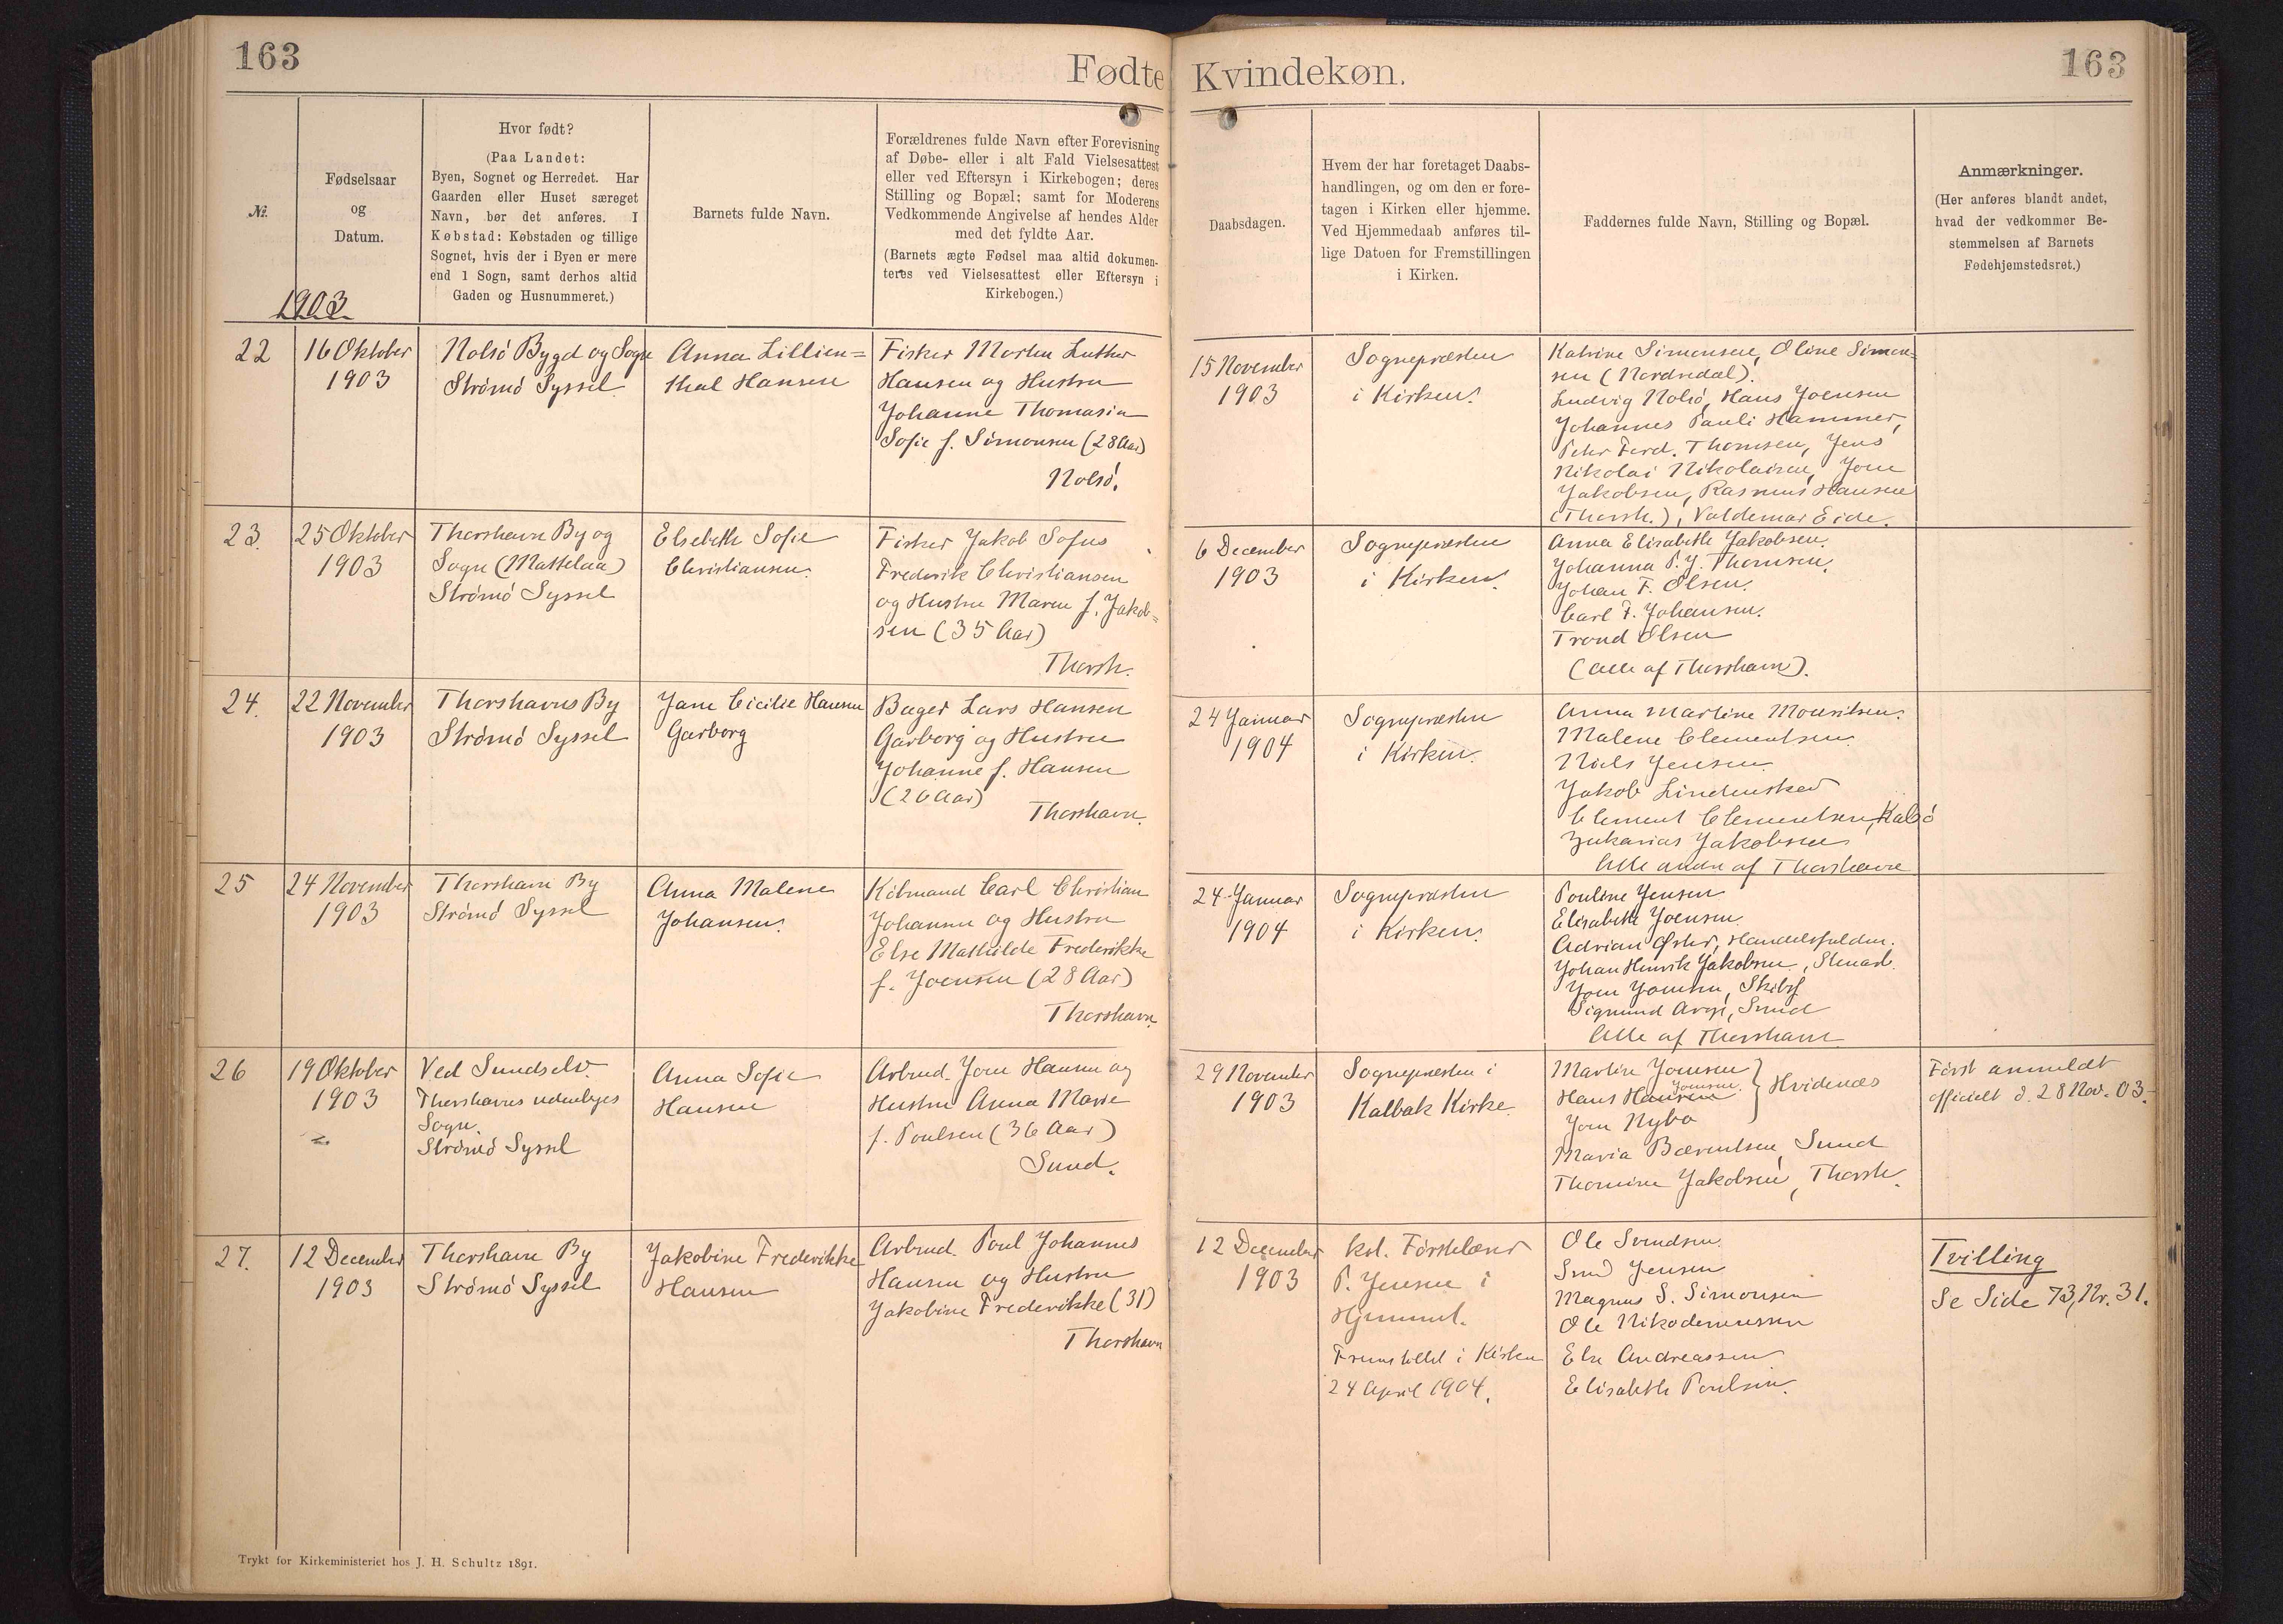 163
Fødte
Kvindekøn.
163
Nr.
Fødselsaar
og
Datum.
Hvor født?
(Paa Landet:
Byen, Sognet og Herredet. Har
Gaarden eller Huset særeget
Navn, bør det anføres. I
Købstad: Købstaden og tillige
Sognet, hvis der i Byen er mere
end 1 Sogn, samt derhos altid
Gaden og Husnummeret.)
Barnets fulde Navn.
Forældrenes fulde Navn efter Forevisning
af Døbe- eller i alt Fald Vielsesattest
eller ved Eftersyn i Kirkebogen; deres
Stilling og Bopæl; samt for Moderens
Vedkommende Angivelse af hendes Alder
med det fyldte Aar.
(Barnets ægte Fødsel maa altid dokumen-
teres ved Vielsesattest eller Eftersyn i
Kirkebogen.)
Daabsdagen.
Hvem der har foretaget Daabs-
handlingen, og om den er fore-
tagen i Kirken eller hjemme.
Ved Hjemmedaab anføres til-
lige Datoen for Fremstillingen
i Kirken.
Faddernes fulde Navn, Stilling og Bopæl.
Anmærkninger.
(Her anføres blandt andet,
hvad der vedkommer Be-
stemmelsen af Barnets
Fødehjemstedsret.)
1903.
22
16 Oktober
1903
Nolsö Bygd og Sogn
Strömö Syssel
Anna Lillien=
thal Hansen
Fisker Morten Luther
Hansen og Hustru
Johanne Thomasia
Sofie f. Simonsen (28 Aar)
Nolsö.
15 November
1903
Sognepræsten
i Kirken.
Katrine Simonsen, Oline Simon-
sen (Nordredal).
Ludvig Nolsö, Hans Joensen
Johannes Pauli Hammer,
Peter Ferd. Thomsen, Jens
Nikolai Nikolaisen, Joen
Jakobsen, Rasmus Hansen
(Thorsh.), Valdemar Eide.
23.
25 Oktober
1903
Thorshavn By og
Sogn (Mattelaa)
Strömö Syssel
Elsebeth Sofie
Christiansen.
Fisker Jakob Sofus
Frederik Christiansen
og Hustru Maren f. Jakob=
sen (35 Aar)
Thorsh.
6 December
1903
Sognepræsten
i Kirken.
Anna Elisabeth Jakobsen.
Johanna P. J. Thomsen.
Johan F. Olsen.
Carl F. Johansen.
Trond Olsen
(Alle af Thorshavn).
24.
22 November
1903
Thorshavns By
Strömö Syssel
Jane Cicilie Hansen
Garborg
Bager Lars Hansen
Garborg og Hustru
Johanne f. Hansen
(26 Aar)
Thorshavn.
24 Januar
1904
Sognepræsten
i Kirken.
Anna Martine Mouritsen.
Malene Clementsen
Niels Jensen
Jakob Lindenskov
Clement Clementsen, Kalsö
Zakarias Jakobsen
Alle anden af Thorshavn
25
24 November
1903
Thorshavn By
Strömö Syssel
Anna Malene
Johansen.
Købmand Carl Christian
Johansen og Hustru
Else Mathilde Frederikke
f. Joensen (28 Aar)
Thorshavn.
24 Januar
1904
Sognepræsten
i Kirken.
Pouline Jensen
Elisabeth Joensen
Adrian Øster, Handelsfuldm.
Johan Henrik Jakobsen, Stenarb.
Joen Joensen, Skibsf
Sigmund Arge, Smed
Alle af Thorshavn
26
19 Oktober
1903
Ved Sundselv.
Thorshavns udenbyes
Sogn.
Strömö Syssel
Anna Sofie
Hansen
Arbmd. Joen Hansen og
Hustru Anna Marie
f. Poulsen (36 Aar)
Sund.
29 November
1903
Sognepræsten i
Kalbak Kirke
Martin Joensen
Joensen.
Hans Hansen
Joen Nybo
Hvidenæs
Maria Bærentsen, Sund
Thomine Jakobsen, Thorsh.
Först anmeldt
officielt d. 28 Nov. 03.
27.
12 December
1903
Thorshavn By
Strömö Syssel
Jakobine Frederikke
Hansen
Arbmd. Poul Johannes
Hansen og Hustru
Jakobine Frederikke (31)
Thorshavn
12 December
1903
kst. Förstelærer
P. Jensen i
Hjemmet.
Fremstillet i Kirken
24 April 1904.
Ole Svendsen.
Smd Jensen
Magnus S. Simonsen
Ole Nikodemussen
Else Andreassen
Elisabeth Poulsen.
Tvilling
Se Side 73, Nr. 31.
Trykt for Kirkeministeriet hos J. H. Schultz 1891.